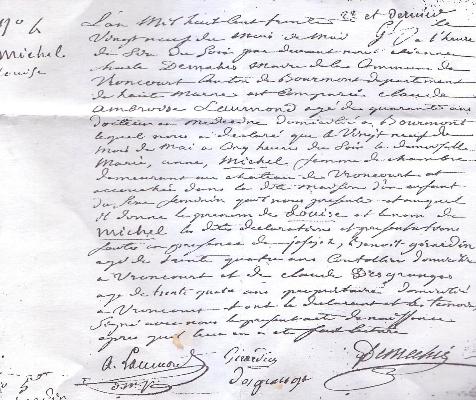 N° 4
Michel
Louise
L'an Mil huit Cent trente et le
Vingt neuf du Mois de Mai à heure
du Soir par devant nous étienne
charle Demahis Maire de la Commune de
Vroncourt Canton de Bourmont département
de haute Marne est Comparu claude
ambroise Laumond agé de quarante ans
docteur en Medecine domicilié à Bourmont
lequel nous a déclaré que le Vingt neuf du
Mois de Mai à Cinq heures du Soir la demoiselle
Marie, anne, Michel femme de chambre
demeurant au chateau de Vroncourt est
accouchée dans la dite maison d'un enfant
du Sexe feminin qu'il nous présente et auquel
il donne le prénom de Louise et le nom de
Michel les dites déclarations et présentations
faites en présence de joseph, benoit girardin
agé de trente quatre ans Cultivateur domicilié
à Vroncourt et de claude Desgranges
age de trente quatre ans propriétaire domicilié
à Vroncourt et ont le déclarant et témoins
Signé avec nous le présent acte de naissance
après que lecture a été fait
A. Laumond Girardin Demahis
d.m.p. Desgranges
N° 5